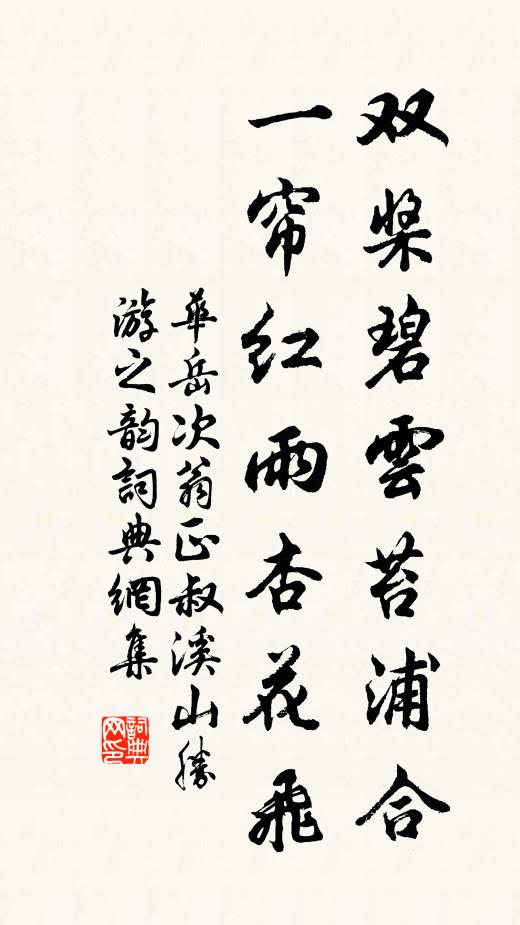 双桨碧雲苔浦合
一帘红雨杏花飛
華岳次翁正叔溪山勝
游之韵詞典網集
詞典网印